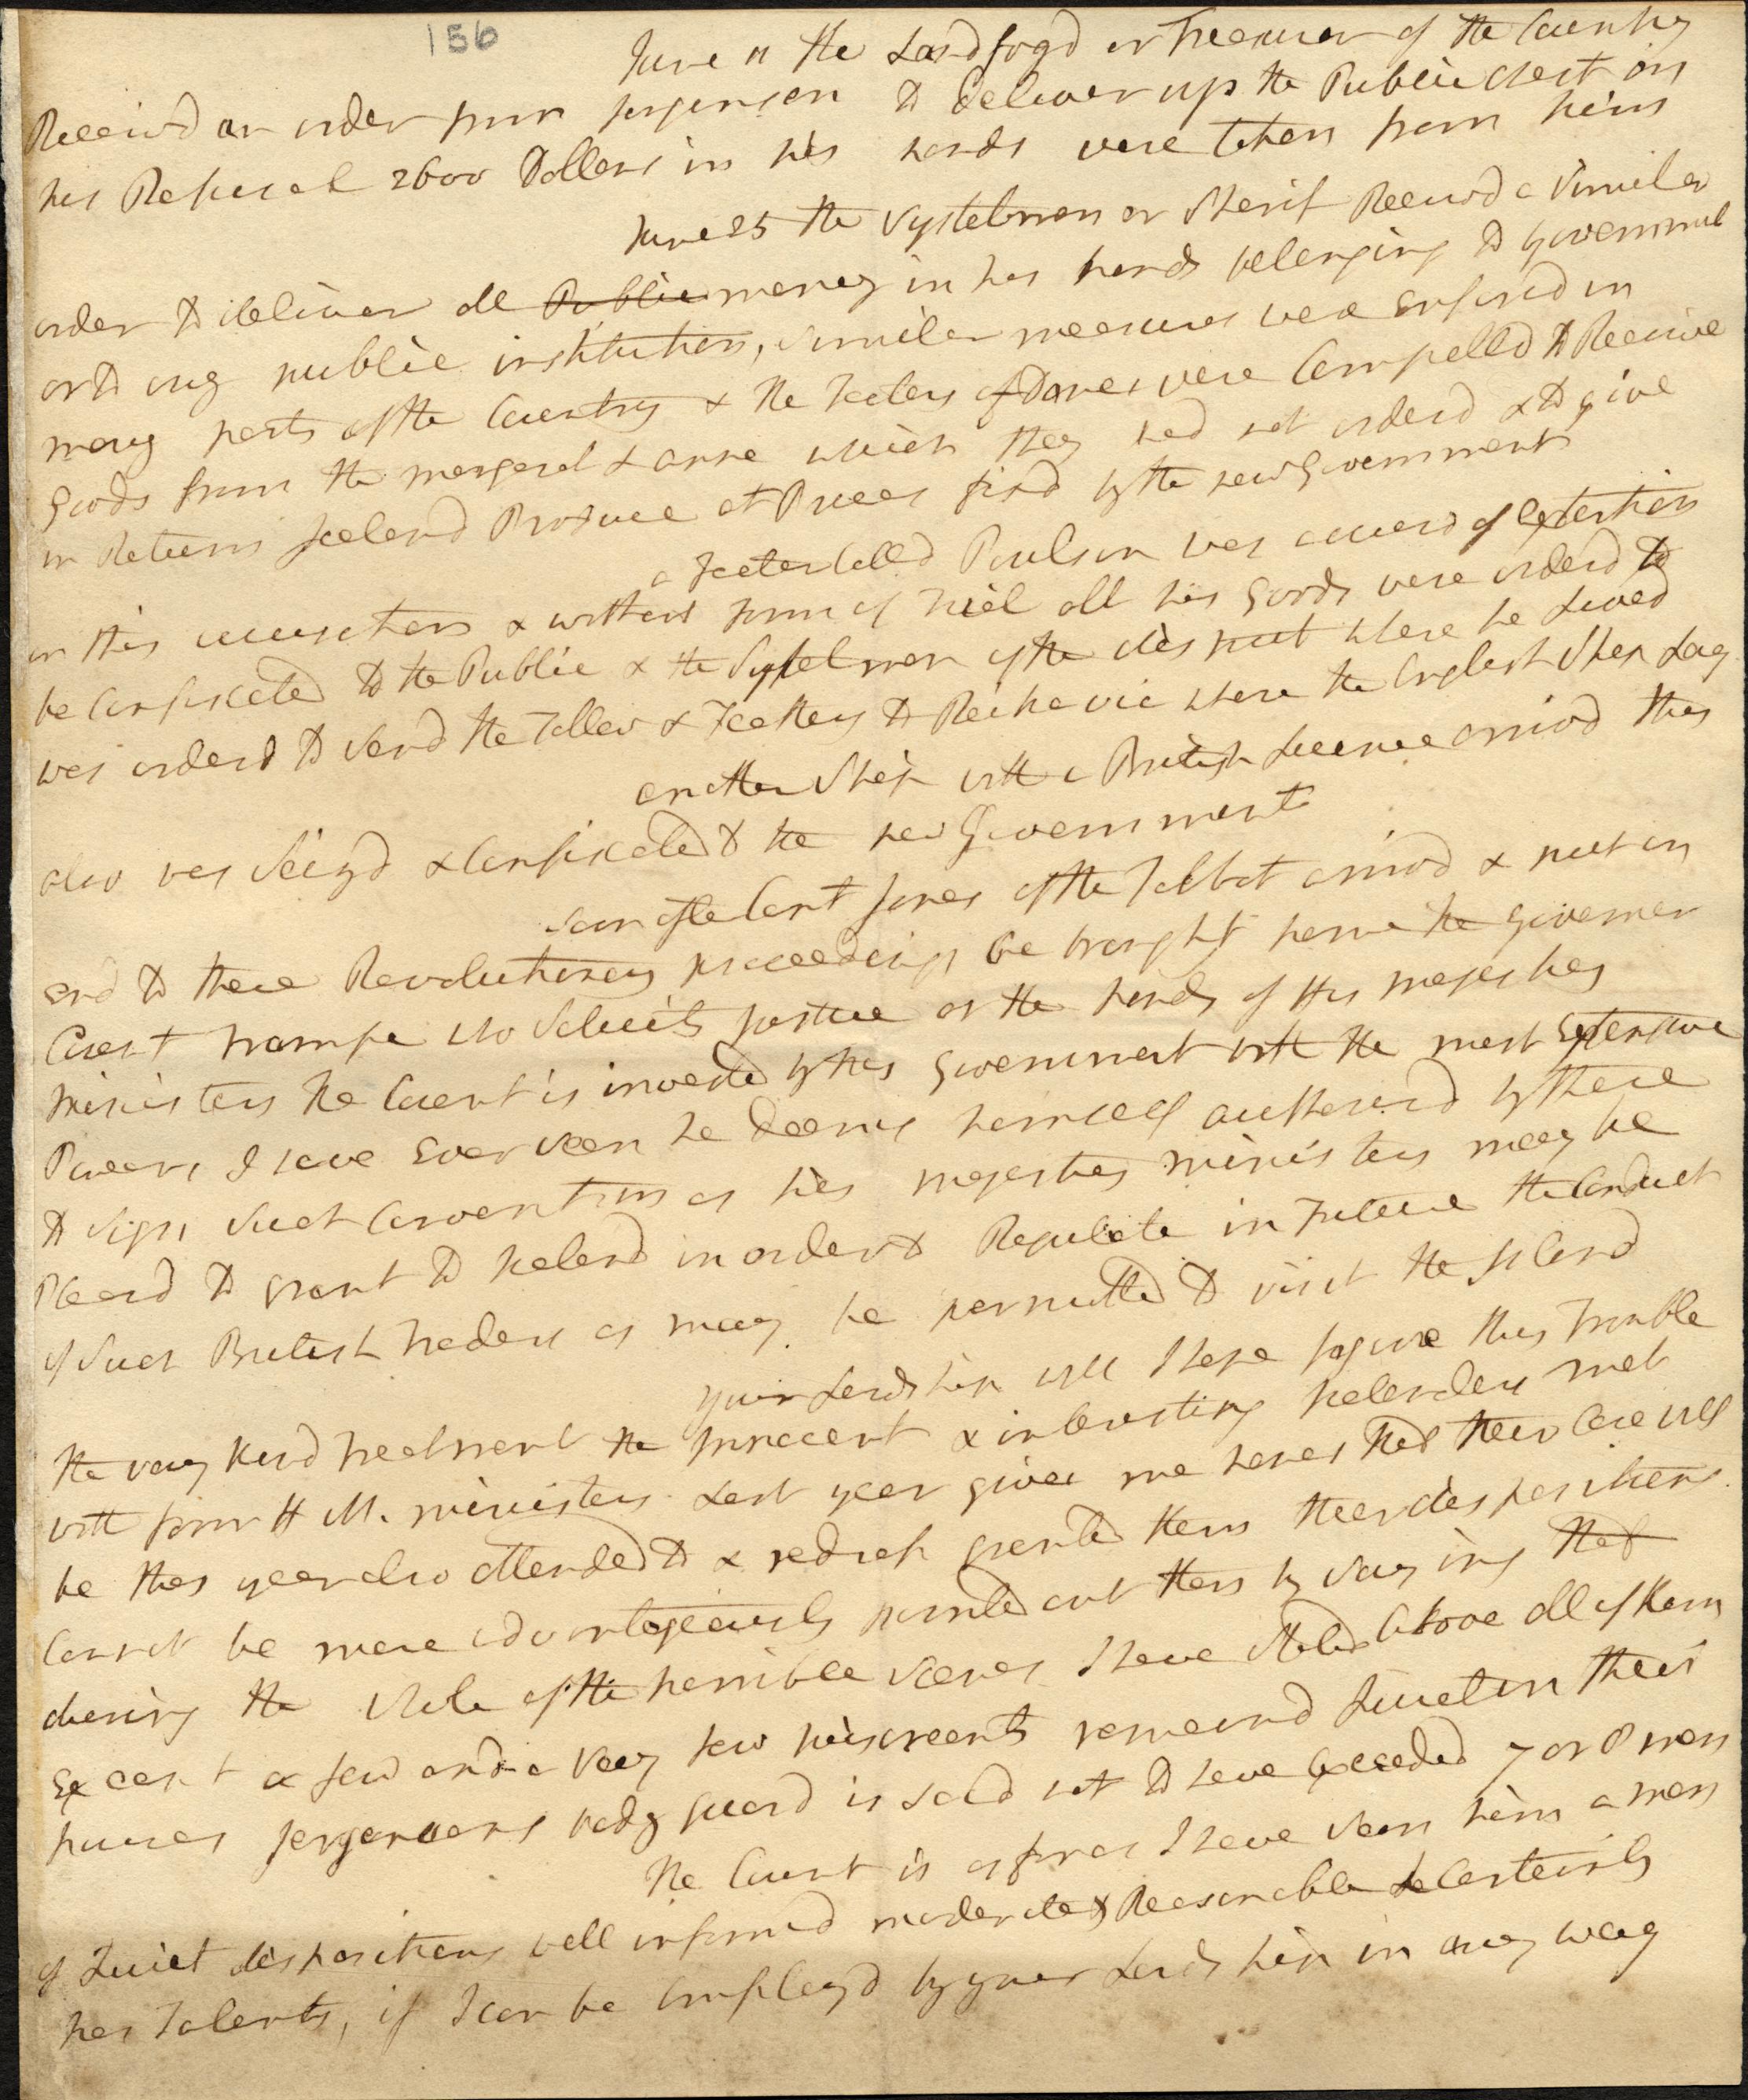 156
June 11 the Landfogd or Treasurer of the Country
Receivd an order from Jorgensen to deliver up the Public chest on
his Refusal 2600 Dollars in his hands were taken from him
June 25 the Systelman or Sherif Receivd a Similar
order to deliver all Public money in his hands belonging to Government
or to any public institution, Similar measures were enforcd in
many parts of the Country & the Factors of Danes were Compelld to Receive
Goods from the Margaret & Anne which they had not orderd & to give
in Return Iceland Produce at Prices fixd by the new Government
a Factor Calld Paulsen was accusd of Extortion
on this accusation & without form of trial all his Goods were orderd to
be Confiscated to the Public & the Sysselman of the district where he Lived
was orderd to Send the Tallow & Feathers to Reikevic where the English Ship Lay
another Ship with a British Licence arrivd this
also was Seizd & Confiscated to the new Government
Soon after Capt Jones of the Talbot arrivd & put an
end to these Revolutionary proceedings he brought home the Governor
Count Trampe who Solicits justice at the hands of His majesties
ministers the Count is invested by his Government with the most Extensive
Powers I have Ever Seen he deems himself authorisd by these
to Sign Such Conventions as his majesties ministers may be
Pleasd to grant to Iceland in order to Regulate in Future the Conduct
of Such British traders as may be permitted to visit the Island
your Lordship will I hope forgive this Trouble
the very kind treatment the innocent & interesting Icelanders met
with from H M. ministers Last year gives me hopes that their Case will
be this year also attended to & redress granted them their dispositions
Cannot be more advantageously pointed out then by Saying that
during the whole of the horrible Scenes I have Stated above all of them
Except a few and a very few miscreants remaind Quiet in their
houses Jorgensens body guard is said not to have Exceeded 7 or 8 men
The Count is as far as I have Seen him a man
of Quiet dispositions well informd moderate & Reasonable he Certainly
has Talents, if I can be Employd by your Lordship in any way